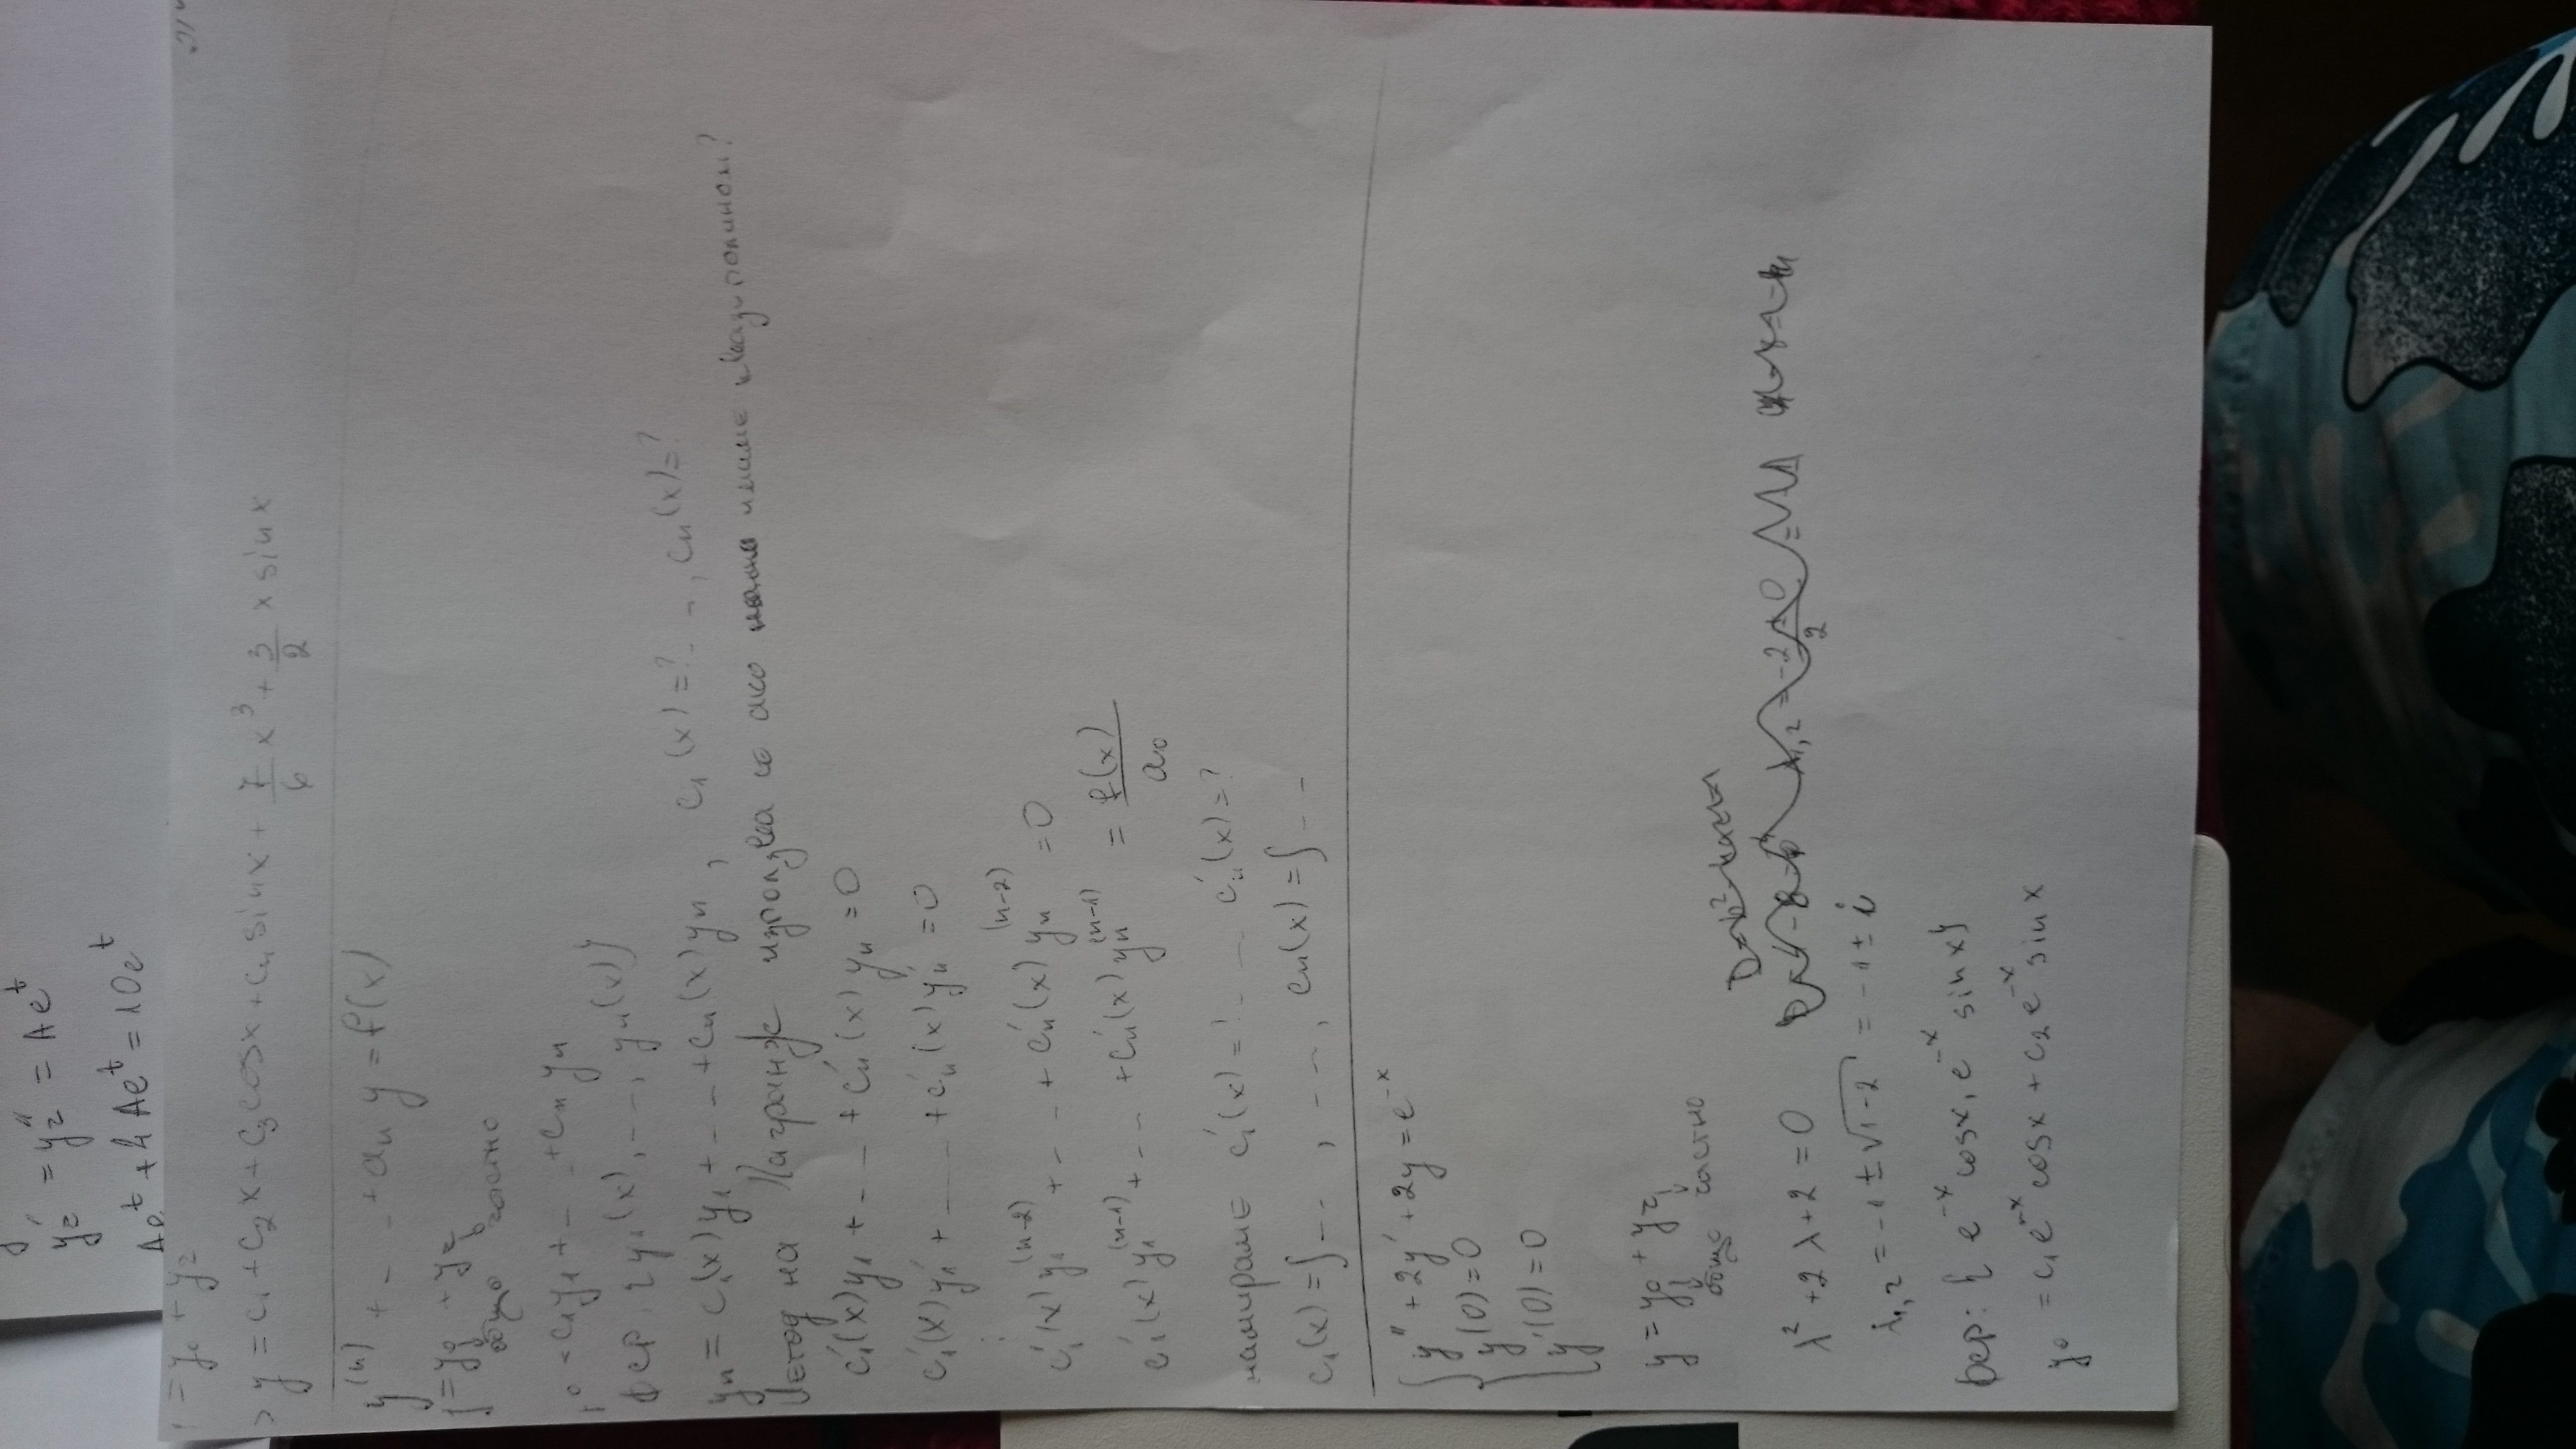 y_z' = y_z'' = Ae^t
Ae^t + 4Ae^t = 10e^t
= y_0 + y_z
y = c_1 + c_2 x + c_3 cosx + c_4 sinx + 7/6 x^3 + 3/2 x sinx
y^(n) + - - + a_n y = f(x)
y = y_0 + y_z
общо частно
y_0 = c_1 y_1 + - - + c_n y_n
фср: {y_1(x), - - -, y_n(x)}
y_n = c_1(x) y_1 + - - + c_n(x) y_n, c_1(x) = ? - -, c_n(x) = ?
Метод на Лагранж използва се ако нямаме квазиполином?
c_1'(x) y_1 + - - + c_n'(x) y_n = 0
c_1'(x) y_1' + - - + c_n'(x) y_n' = 0
⋮
c_1'(x) y_1^(n-2) + - - + c_n'(x) y_n^(n-2) = 0
c_1'(x) y_1^(n-1) + - - + c_n'(x) y_n^(n-1) = f(x)/a_0
намираме c_1'(x) = ? - - c_n'(x) = ?
c_1(x) = ∫ - - , - - , c_n(x) = ∫ - -
{ y'' + 2y' + 2y = e^-x
y(0) = 0
y'(0) = 0
y = y_0 + y_z
общо частно
λ^2 + 2λ + 2 = 0
λ_1,2 = -1 ± √1-2 = -1 ± i
фср: { e^-x cosx, e^-x sinx}
y_0 = c_1 e^-x cosx + c_2 e^-x sinx